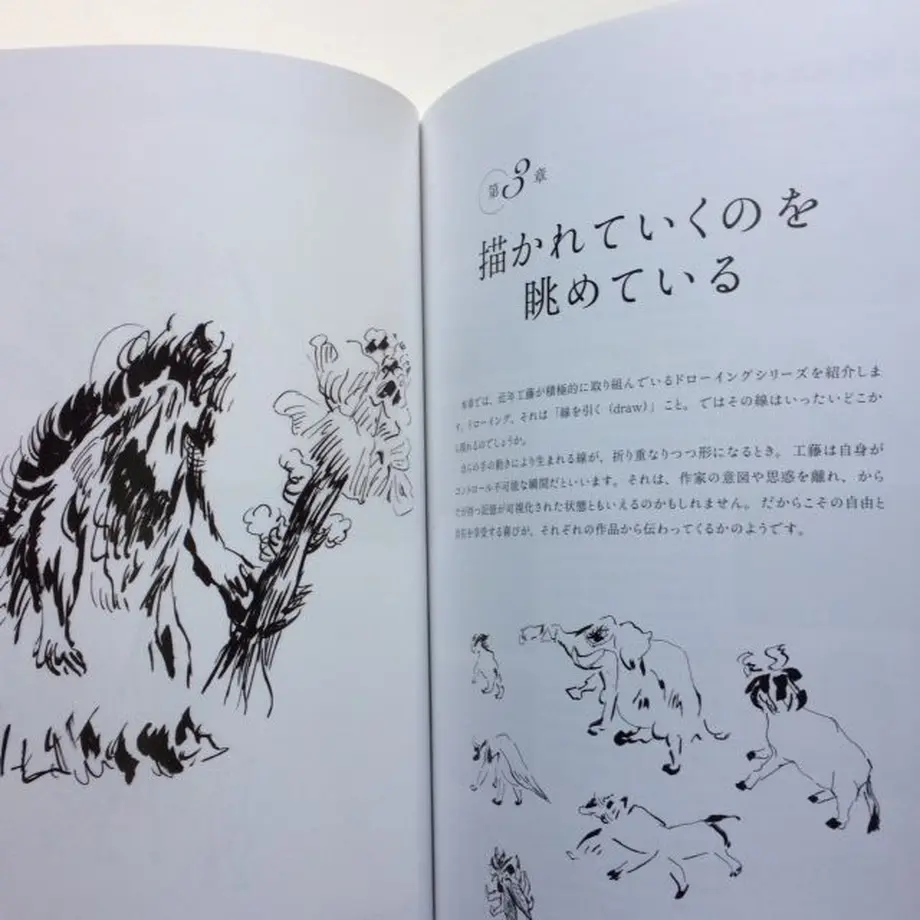 第3章
描かれていくのを
眺めている
本章では、近年工藤が積極的に取り組んでいるドローイングシリーズを紹介しま
す。ドローイング、それは「線を引く(draw)」こと。ではその線はいったいどこか
ら現れるのでしょうか。
自らの手の動きにより生まれる線が、折り重なりつつ形になるとき。工藤は自身が
コントロール不可能な瞬間だといいます。それは、作家の意図や思惑を離れ、から
だが持つ記憶が可視化された状態ともいえるのかもしれません。だからこその自由と
を享受する喜びが、それぞれの作品から伝わってくるかのようです。